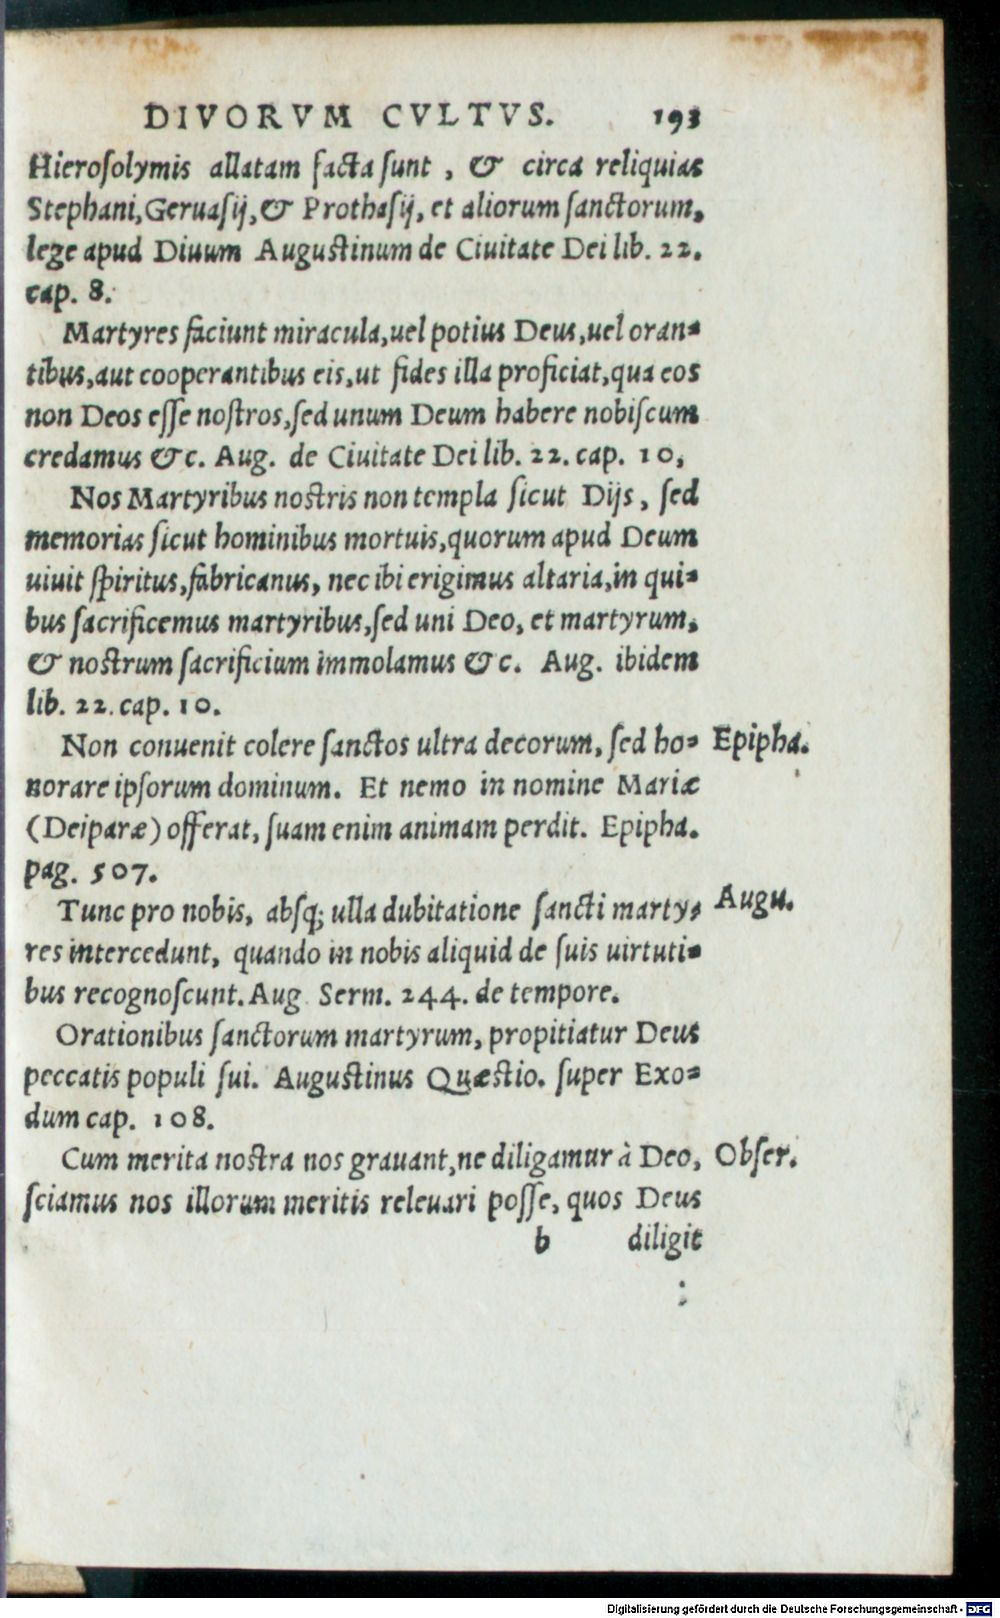 DIVORVM CVLTVS. 193
Hierosolymis allatam facta sunt, & circa reliquias
Stephani, Geruasij, & Prothasij, et aliorum sanctorum,
lege apud Diuum Augustinum de Ciuitate Dei lib. 22.
cap. 8.
Martyres faciunt miracula, uel potius Deus, uel oran-
tibus, aut cooperantibus eis, ut fides illa proficiat, qua eos
non Deos esse nostros, sed unum Deum habere nobiscum
credamus &c. Aug. de Ciuitate Dei lib. 22. cap. 10,
Nos Martyribus nostris non templa sicut Dijs, sed
memorias sicut hominibus mortuis, quorum apud Deum
uiuit spiritus, fabricanus, nec ibi erigimus altaria, in qui-
bus sacrificemus martyribus, sed uni Deo, et martyrum,
& nostrum sacrificium immolamus &c. Aug. ibidem
lib. 22. cap. 10.
Non conuenit colere sanctos ultra decorum, sed ho- Epipha.
norare ipsorum dominum. Et nemo in nomine Mariæ
(Deiparæ) offerat, suam enim animam perdit. Epipha.
pag. 507.
Tunc pro nobis, absq; ulla dubitatione sancti marty- Augu.
res intercedunt, quando in nobis aliquid de suis uirtuti-
bus recognoscunt. Aug Serm. 244. de tempore.
Orationibus sanctorum martyrum, propitiatur Deus
peccatis populi sui. Augustinus Quæstio. super Exo-
dum cap. 108.
Cum merita nostra nos grauant, ne diligamur à Deo, Obser.
sciamus nos illorum meritis releuari posse, quos Deus
b diligit
Digitalisierung gefördert durch die Deutsche Forschungsgemeinschaft - DFG